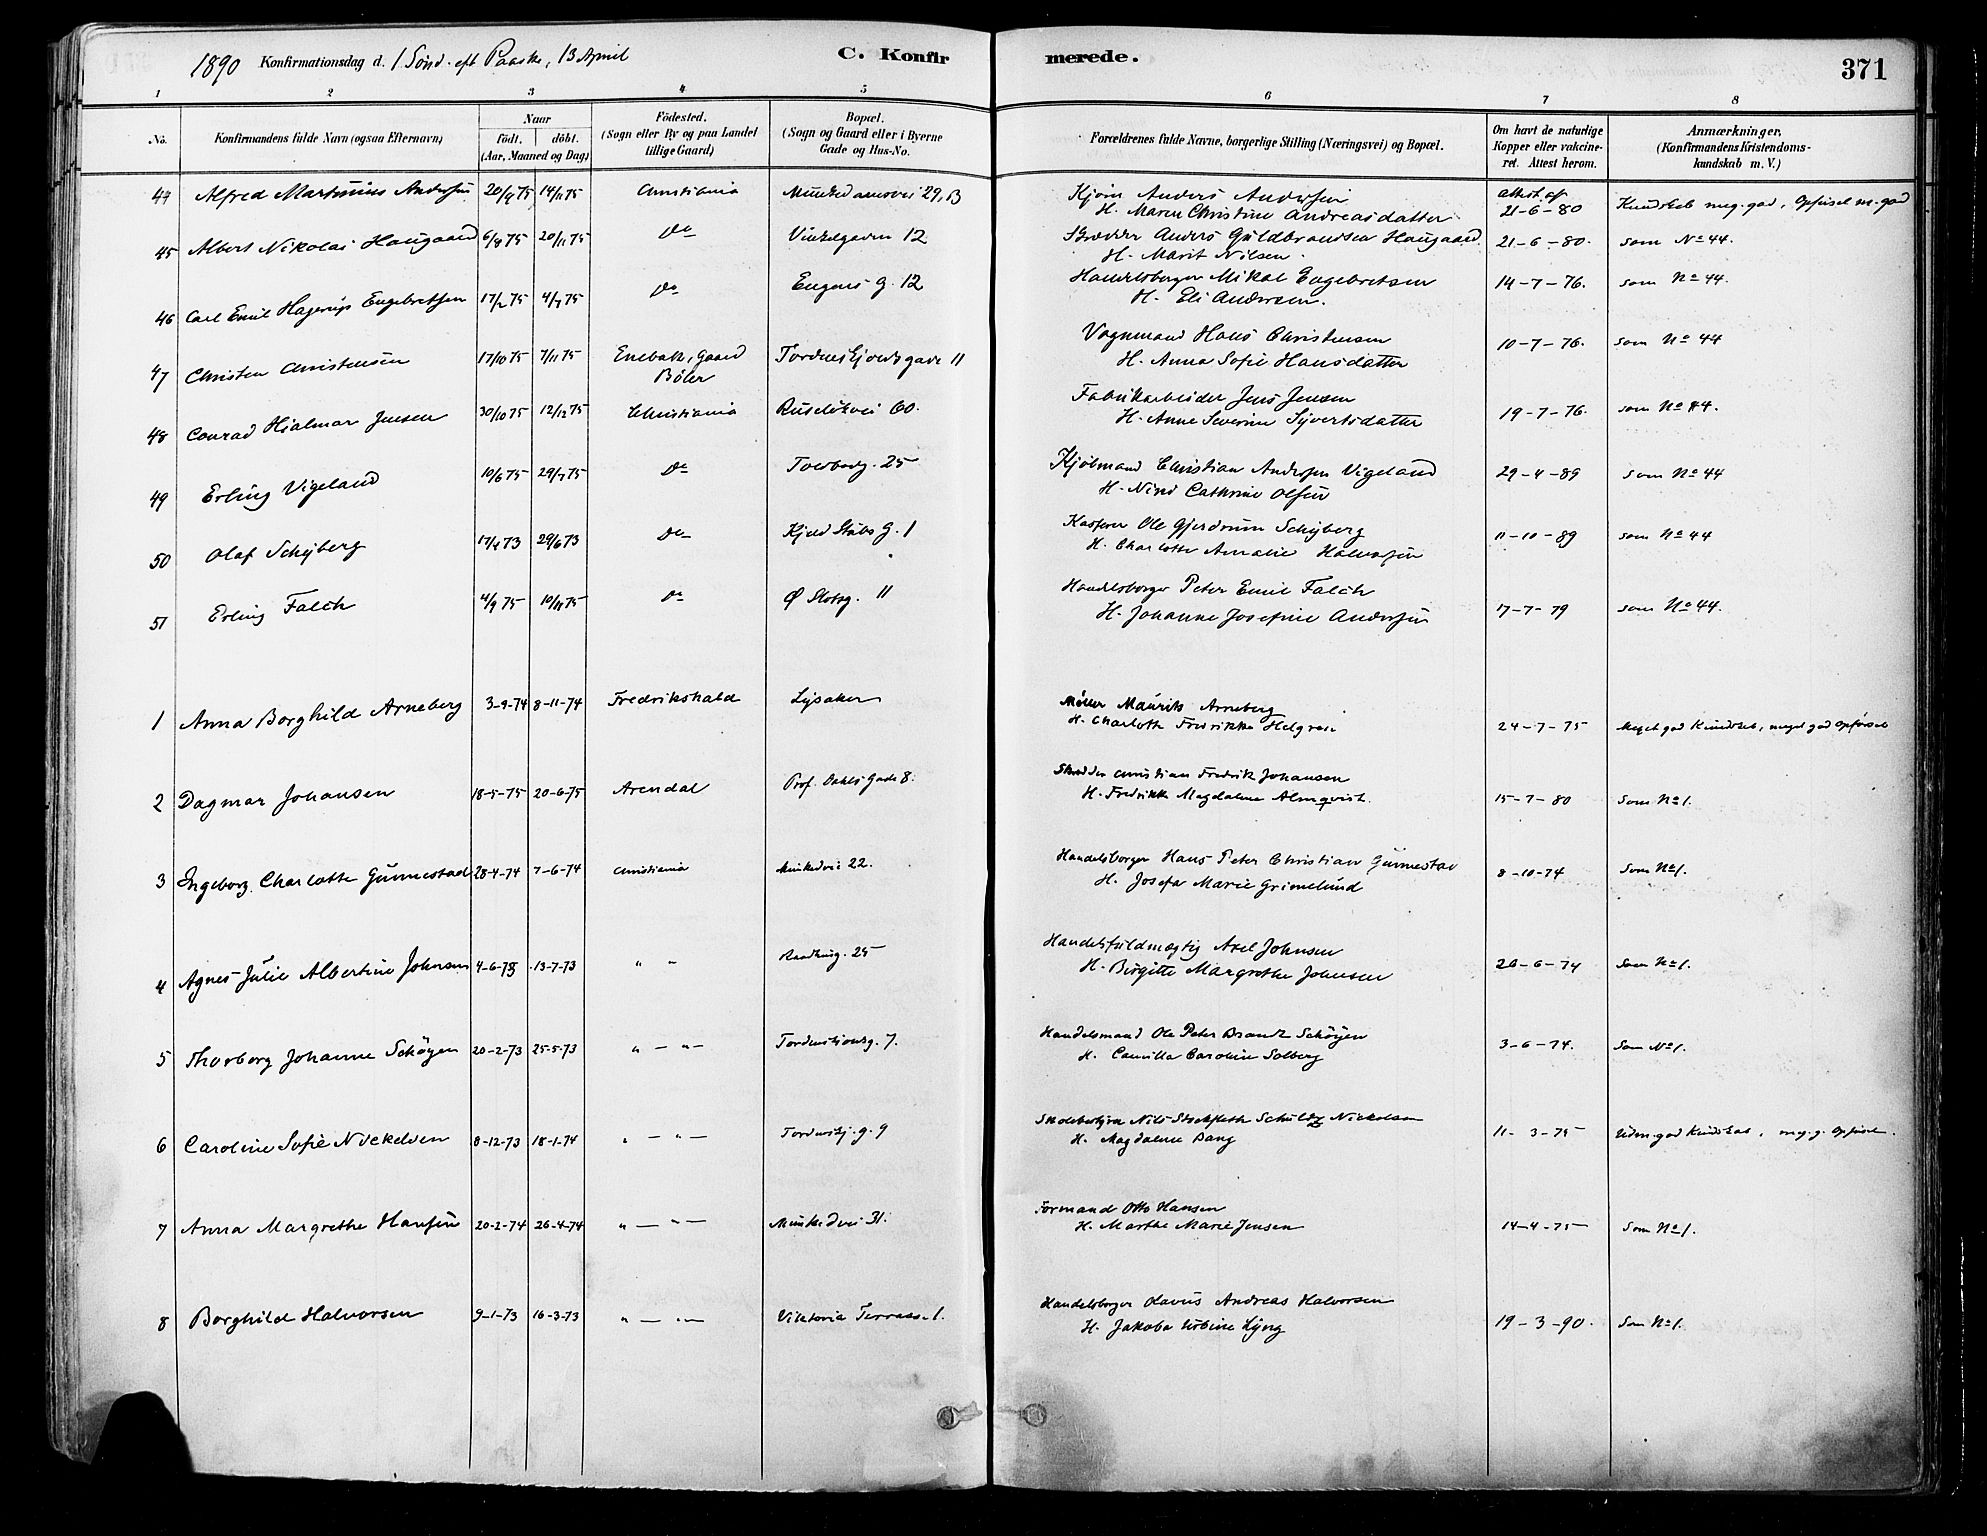 1890 Konfirmationsdag d. 1 Sönd. eft Paaske, 13 April C. Konfirmerede. 371
1 2 3 4 5 6 7 8
No. Konfirmandens fulde Navn (ogsaa Efternavn) Naar födt. döbt. (Aar, Maaned og Dag) Födested. (Sogn eller By og paa Landet tillige Gaard) Bopæl. (Sogn og Gaard eller i Byerne Gade og Hus-No. Forældrenes fulde Navne, borgerlige Stilling (Næringsvei) og Bopæl. Om havt de naturlige Kopper eller vakcineret. Attest herom. Anmærkninger, (Konfirmandens Kristendomskundskab m. V.)
44 Alfred Martinius Andersen 20/9 75 14/11 75 Christiania Munkedamsvei 29, B Kjøm Anders Andersen attest af 21-6-80 Kundskab meg. god, Opførsel m. god
H. Maren Christine Andreasdatter
45 Albert Nikolai Haugaard 6/8 75 20/11 75 Do Vinkelgaden 12 Skrædder Anders Guldbrandsen Haugaard 21-6-80. som No 44.
H. Marit Nilsen.
46 Carl Emil Hagerup Engebretsen 17/2 75 4/7 75 Do Eugenis G. 12 Handelsborger Mikal Engebretsen 14-7-76. som No 44.
H. Eli Andersen.
47 Christen Christensen 17/10 75 7/11 75 Enebak, Gaard Böler Tordenskjoldsgade 11 Vognmand Hans Christensen 10-7-76. som No 44
H. Anna Sofie Hansdatter
48 Conrad Hjalmar Jensen 30/10 75 12/12 75 Christiania Ruselökvei 60. Fabrikarbeider Jens Jensen 19-7-76. som No 44.
H. Anne Severine Syvertsdatter
49 Erling Vigeland 10/6 75 29/7 75 Do Toldbodg. 25 Kjöbmand Christian Andersen Vigeland 29-4-89 som No 44
H. Cathrine Olsen
50 Olaf Schyberg 17/4 73 29/6 73 Do Kjeld Stubs G. 1 Kasserer Ole Gjerdrum Schyberg 11-10-89 som No 44
H. Charlotte Amalie Halvorsen
51 Erling Falch 4/9 75 10/11 75 Do Ø Slotsg. 11 Handelsborger Peter Emil Falch 17-7-79 som No 44.
H. Johanne Josefine Andersen
1 Anna Borghild Arneberg 3-9-74 8-11-74 Fredrikshald Lysaker Møller Mauritz Arneberg 24-7-75 Meget god Kundskab, meget god Opførsel
H. Charlotte Fredrikke Helgren
2 Dagmar Johansen 18-5-75 20-6-75 Arendal Prof. Dahls Gade 8. Skrædder Christian Fredrik Johansen 15-7-80 Som No 1.
H. Fredrikke Magdalene Almqvist.
3 Ingeborg Charlotte Gunnestad 28-4-74 7-6-74 Christiania Munkedvei 22. Handelsborger Hans Peter Christian Gunnestad 8-10-74 Som No 1.
H. Josefa Marie Grimelund
4 Agnes Julie Albertine Johnsen 4-6-73 13-7-73 " " Raadhusg. 25 Handelsfuldmægtig Axel Johnsen 26-6-74 Som No 1.
H. Birgitte Margrethe Johnsen
5 Thorborg Johanne Schöyen 20-2-73 25-5-73 " — " — Tordenskjoldsg. 7. Handelsmand Ole Peter Brandt Schöyen 3-6-74. Som No 1.
H. Camilla Caroline Solberg
6 Caroline Sofie Nickelsen 8-12-73 18-1-74 " — " — Tordenskj. g. 9 Skolebestyrer Nils Stockfleth Schultz Nickelsen 11-3-75 Udm. god Kundskab, meg. g. Opførsel.
H. Magdalene Bang
7 Anna Margrethe Hansen 20-2-74 26-4-74 " — " — Munkedvei 31. Formand Otto Hansen 14-4-75 Som No 1.
H. Marthe Marie Jensen
8 Borghild Halvorsen 9-1-73 16-3-73 " — " — Viktoria Terrasse 1. Handelsborger Olavus Andreas Halvorsen 19-3-90. Som No 1.
H. Jakoba Urbine Lyng